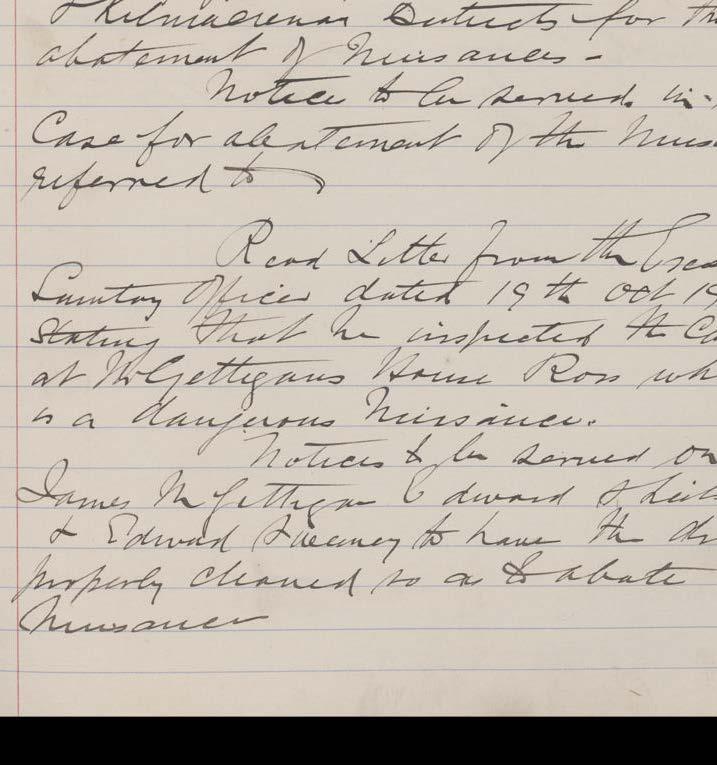 & Kilmacrenan Districts for th
abatement of Nuisances -
Notice to be served in
Case for abatement of the Nuis
referred to
Read Letter from the Exec
Sanitary Officer dated 19th Oct 19
Stating that he inspected the Ca
at McGettigans House Ross wh
is a dangerous Nuisance.
Notices to be served on
James McGettigan Edward
& Edward Sweeney to have the dr
properly cleaned so as to abate
Nuisance